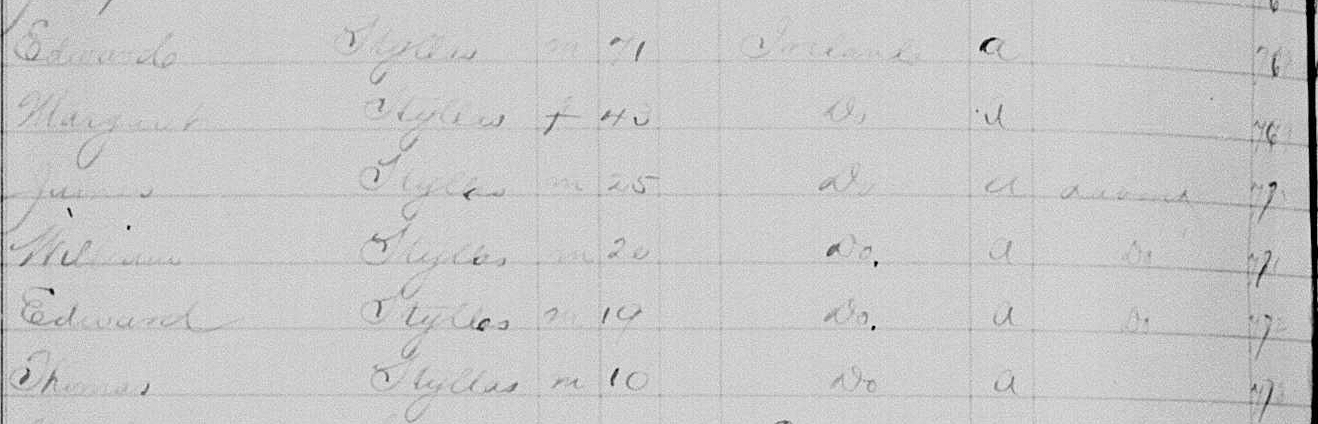 Edward Styllas m 71 Ireland a
Margaret Styllas f 43 Do a
James Styllas m 25 Do a
William Styllas m 20 Do. a Do
Edward Styllas m 19 Do. a Do
Thomas Styllas m 10 Do a